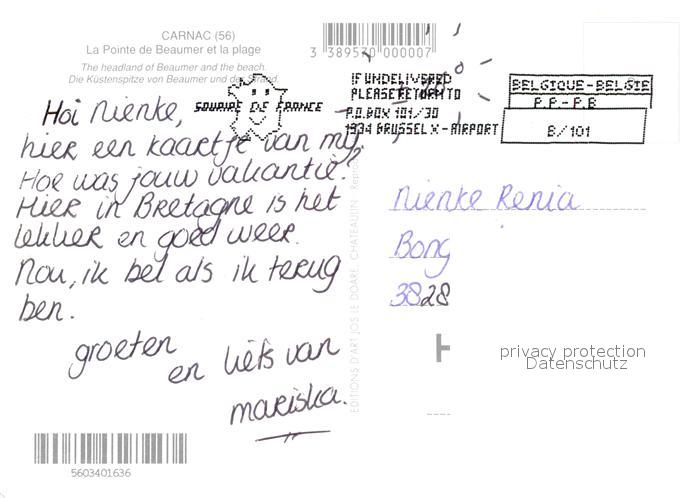 CARNAC (56)
La Pointe de Beaumer et la plage
The headland of Beaumer and the beach.
Die Küstenspitze von Beaumer und der Strand.
3 389570 000007
SOURIRE DE FRANCE
IF UNDELIVERED
PLEASE RETURN TO
P.O.BOX 101/30
1934 BRUSSEL X - AIRPORT
BELGIQUE-BELGIE
P.P.-P.B
B/101
Hoi Nienke,
hier een kaartje van mij,
Hoe was jouw vakantie?
Hier in Bretagne is het
lekker en goed weer.
Nou, ik bel als ik terug
ben.
groeten
en liefs van
mariska.
Nienke Renia
Bong
3828
H
EDITIONS D'ART JOS LE DOARE, CHATEAULIN
privacy protection
Datenschutz
5603401636